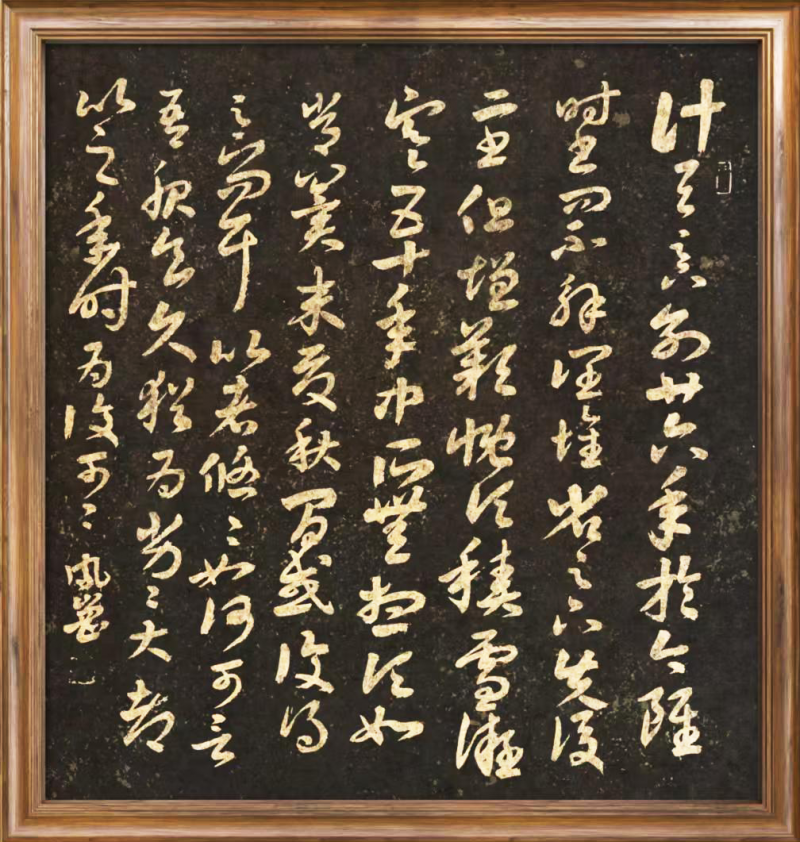 計與足下別廿六年於今雖
時書問不解闊懷省足下先後
二書但增歎慨頃積雪凝
寒五十年中所無想頃如
常冀來夏秋間或復得
足下問耳比者悠々如何可言
吾服食久猶為劣々大都
比之年時為復可々